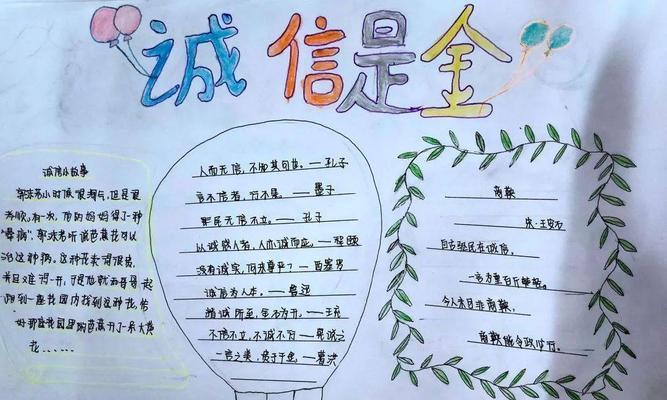 诚信是金
诚信小故事
郭沫若小时候很淘气,但是很
孝顺,有一次,他的妈妈得了一种
“晕病”,郭沫若听说芭蕉花可以
治这种病,这种花卖得很贵,
并且难得一开,于是他就和哥哥
跑到一座花园内找到这种花,恰
好那座花园里的芭蕉开了一朵大黄
花……
人而无信,不知其可也。——孔子
言不信者,行不果。——墨子
民无信不立。——孔子
以诚感人者,人亦诚而应。——程颐
没有诚实,何来尊严?——西塞罗
诚信为人本。——鲁迅
精诚所至,金石为开。——王充
不信不立,不诚不行——晁说之
一言之美,贵于千金。——葛洪
商鞅
宋·王安石
自古驱民在诚信,
一言为重百斤轻。
今人未可非商鞅,
商鞅能令政必行。